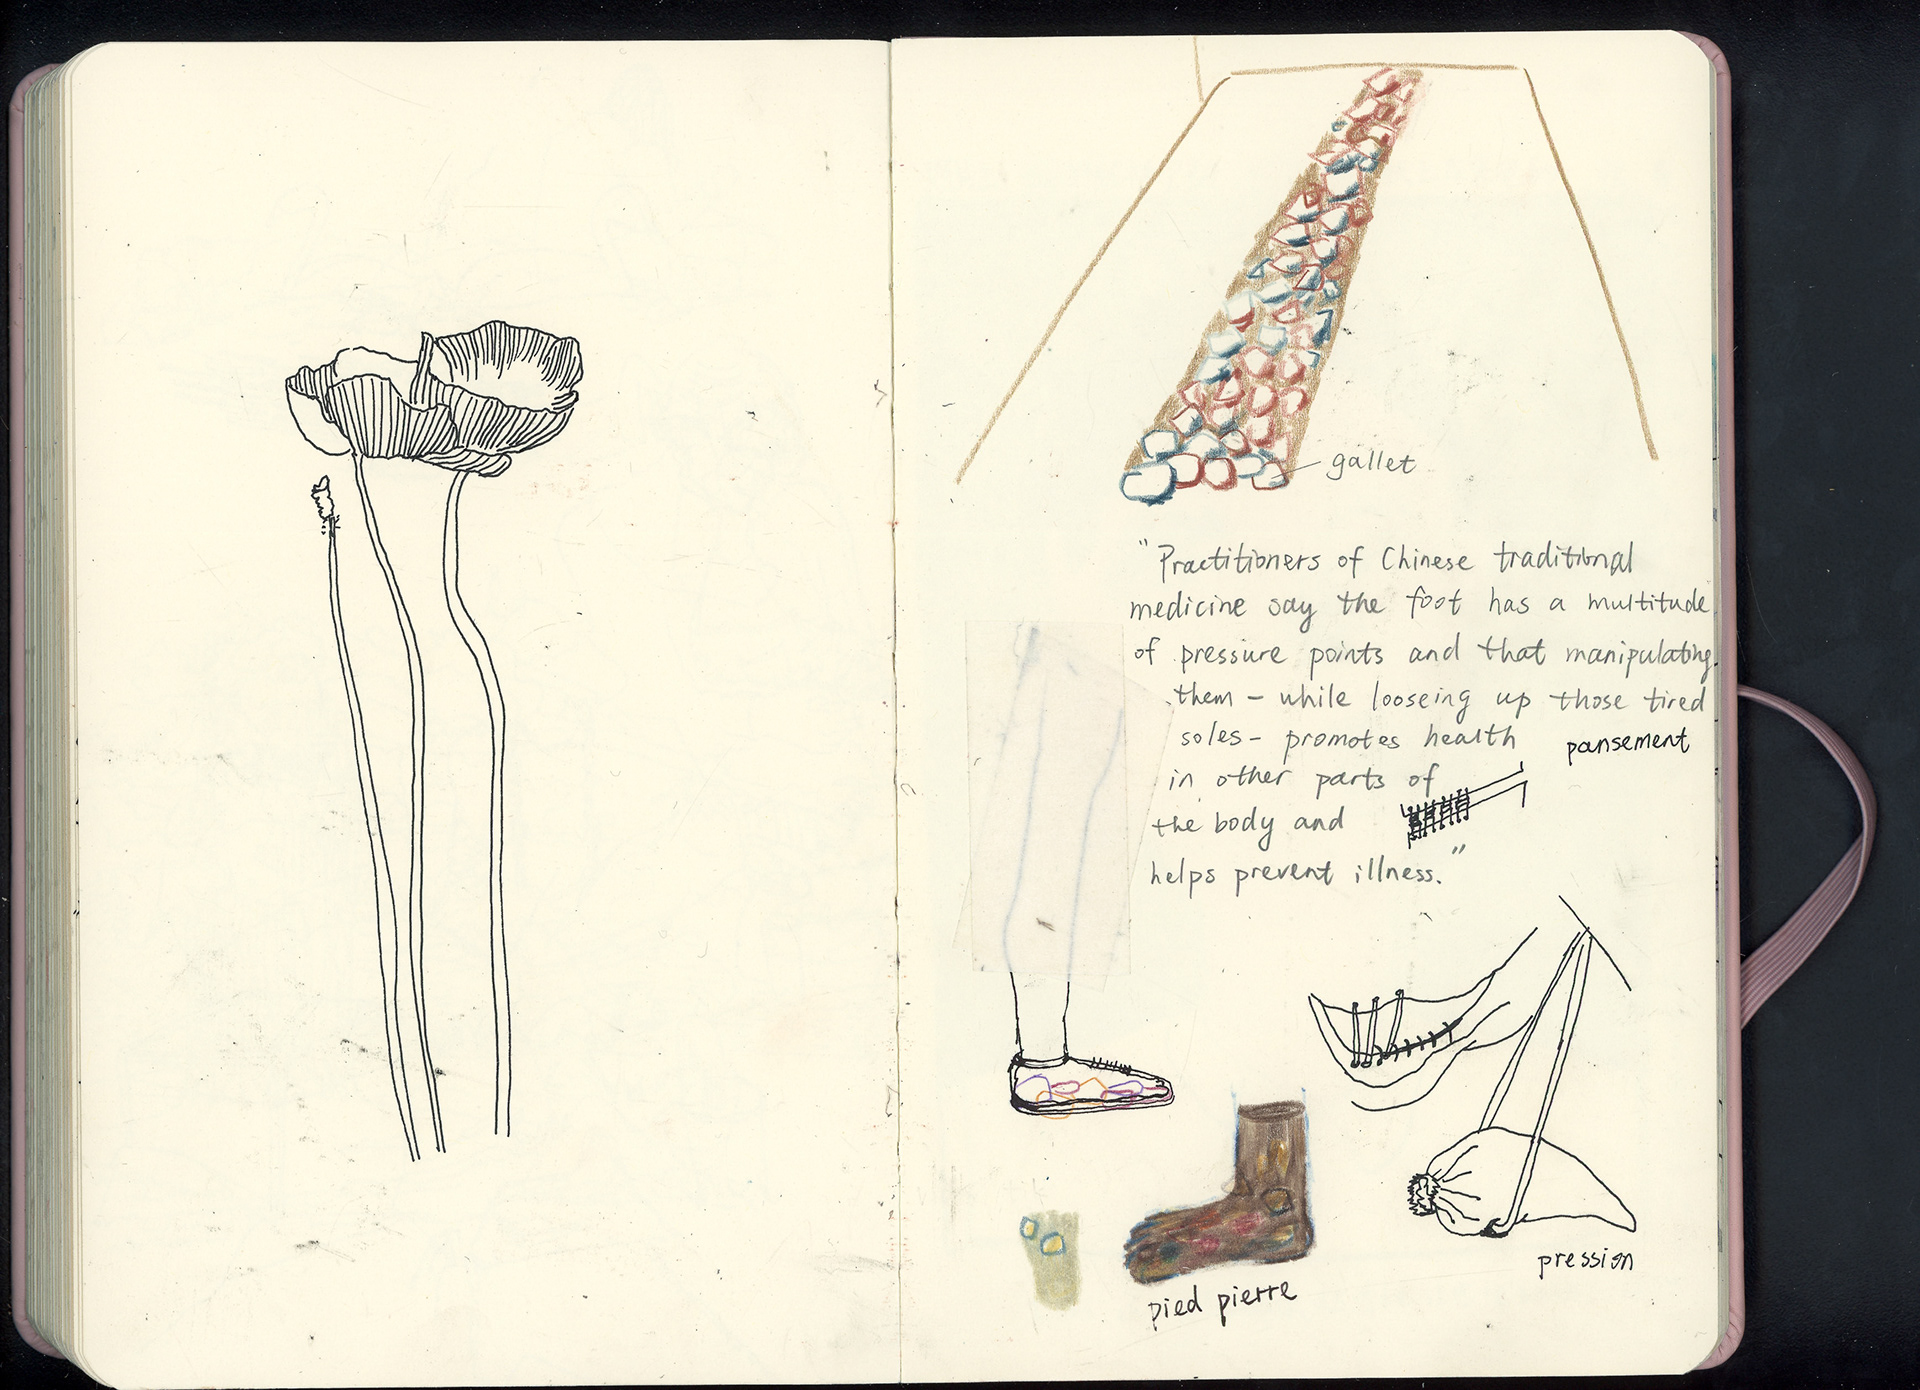 gallet
"Practitioners of Chinese traditional
medicine say the foot has a multitude
of pressure points and that manipulating
them - while looseing up those tired
soles - promotes health
pansement
in other parts of
the body and
helps prevent illness."
pression
pied pierre